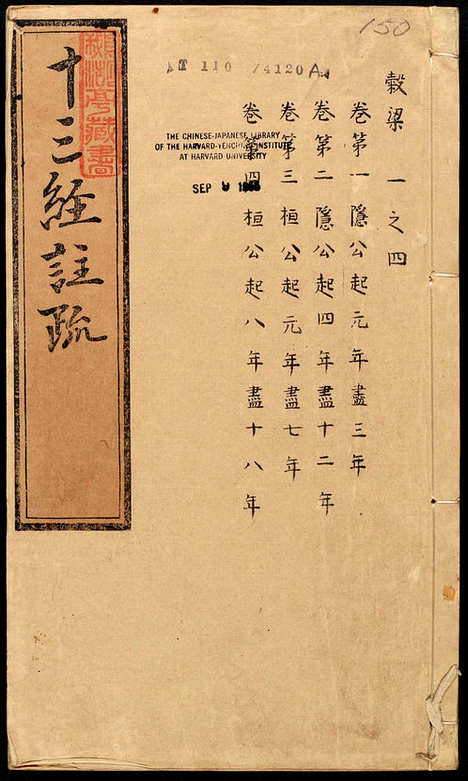 150
T 110 /4120A
穀梁 一之四
卷第一隱公起元年盡三年
卷第二隱公起四年盡十二年
卷第三桓公起元年盡七年
卷第四桓公起八年盡十八年
THE CHINESE-JAPANESE LIBRARY
OF THE HARVARD-YENCHING INSTITUTE
AT HARVARD UNIVERSITY
SEP 9
十三經註疏
藏書